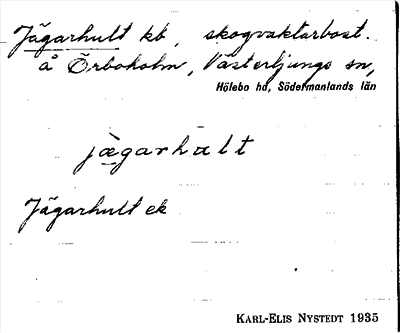 Jägarhult kb, skogvaktarbost.
å Örboholm, Västerljungs sn,
Hölebo hd, Södermanlands län
jägarhult
Jägarhult ek
KARL-ELIS NYSTEDT 1935